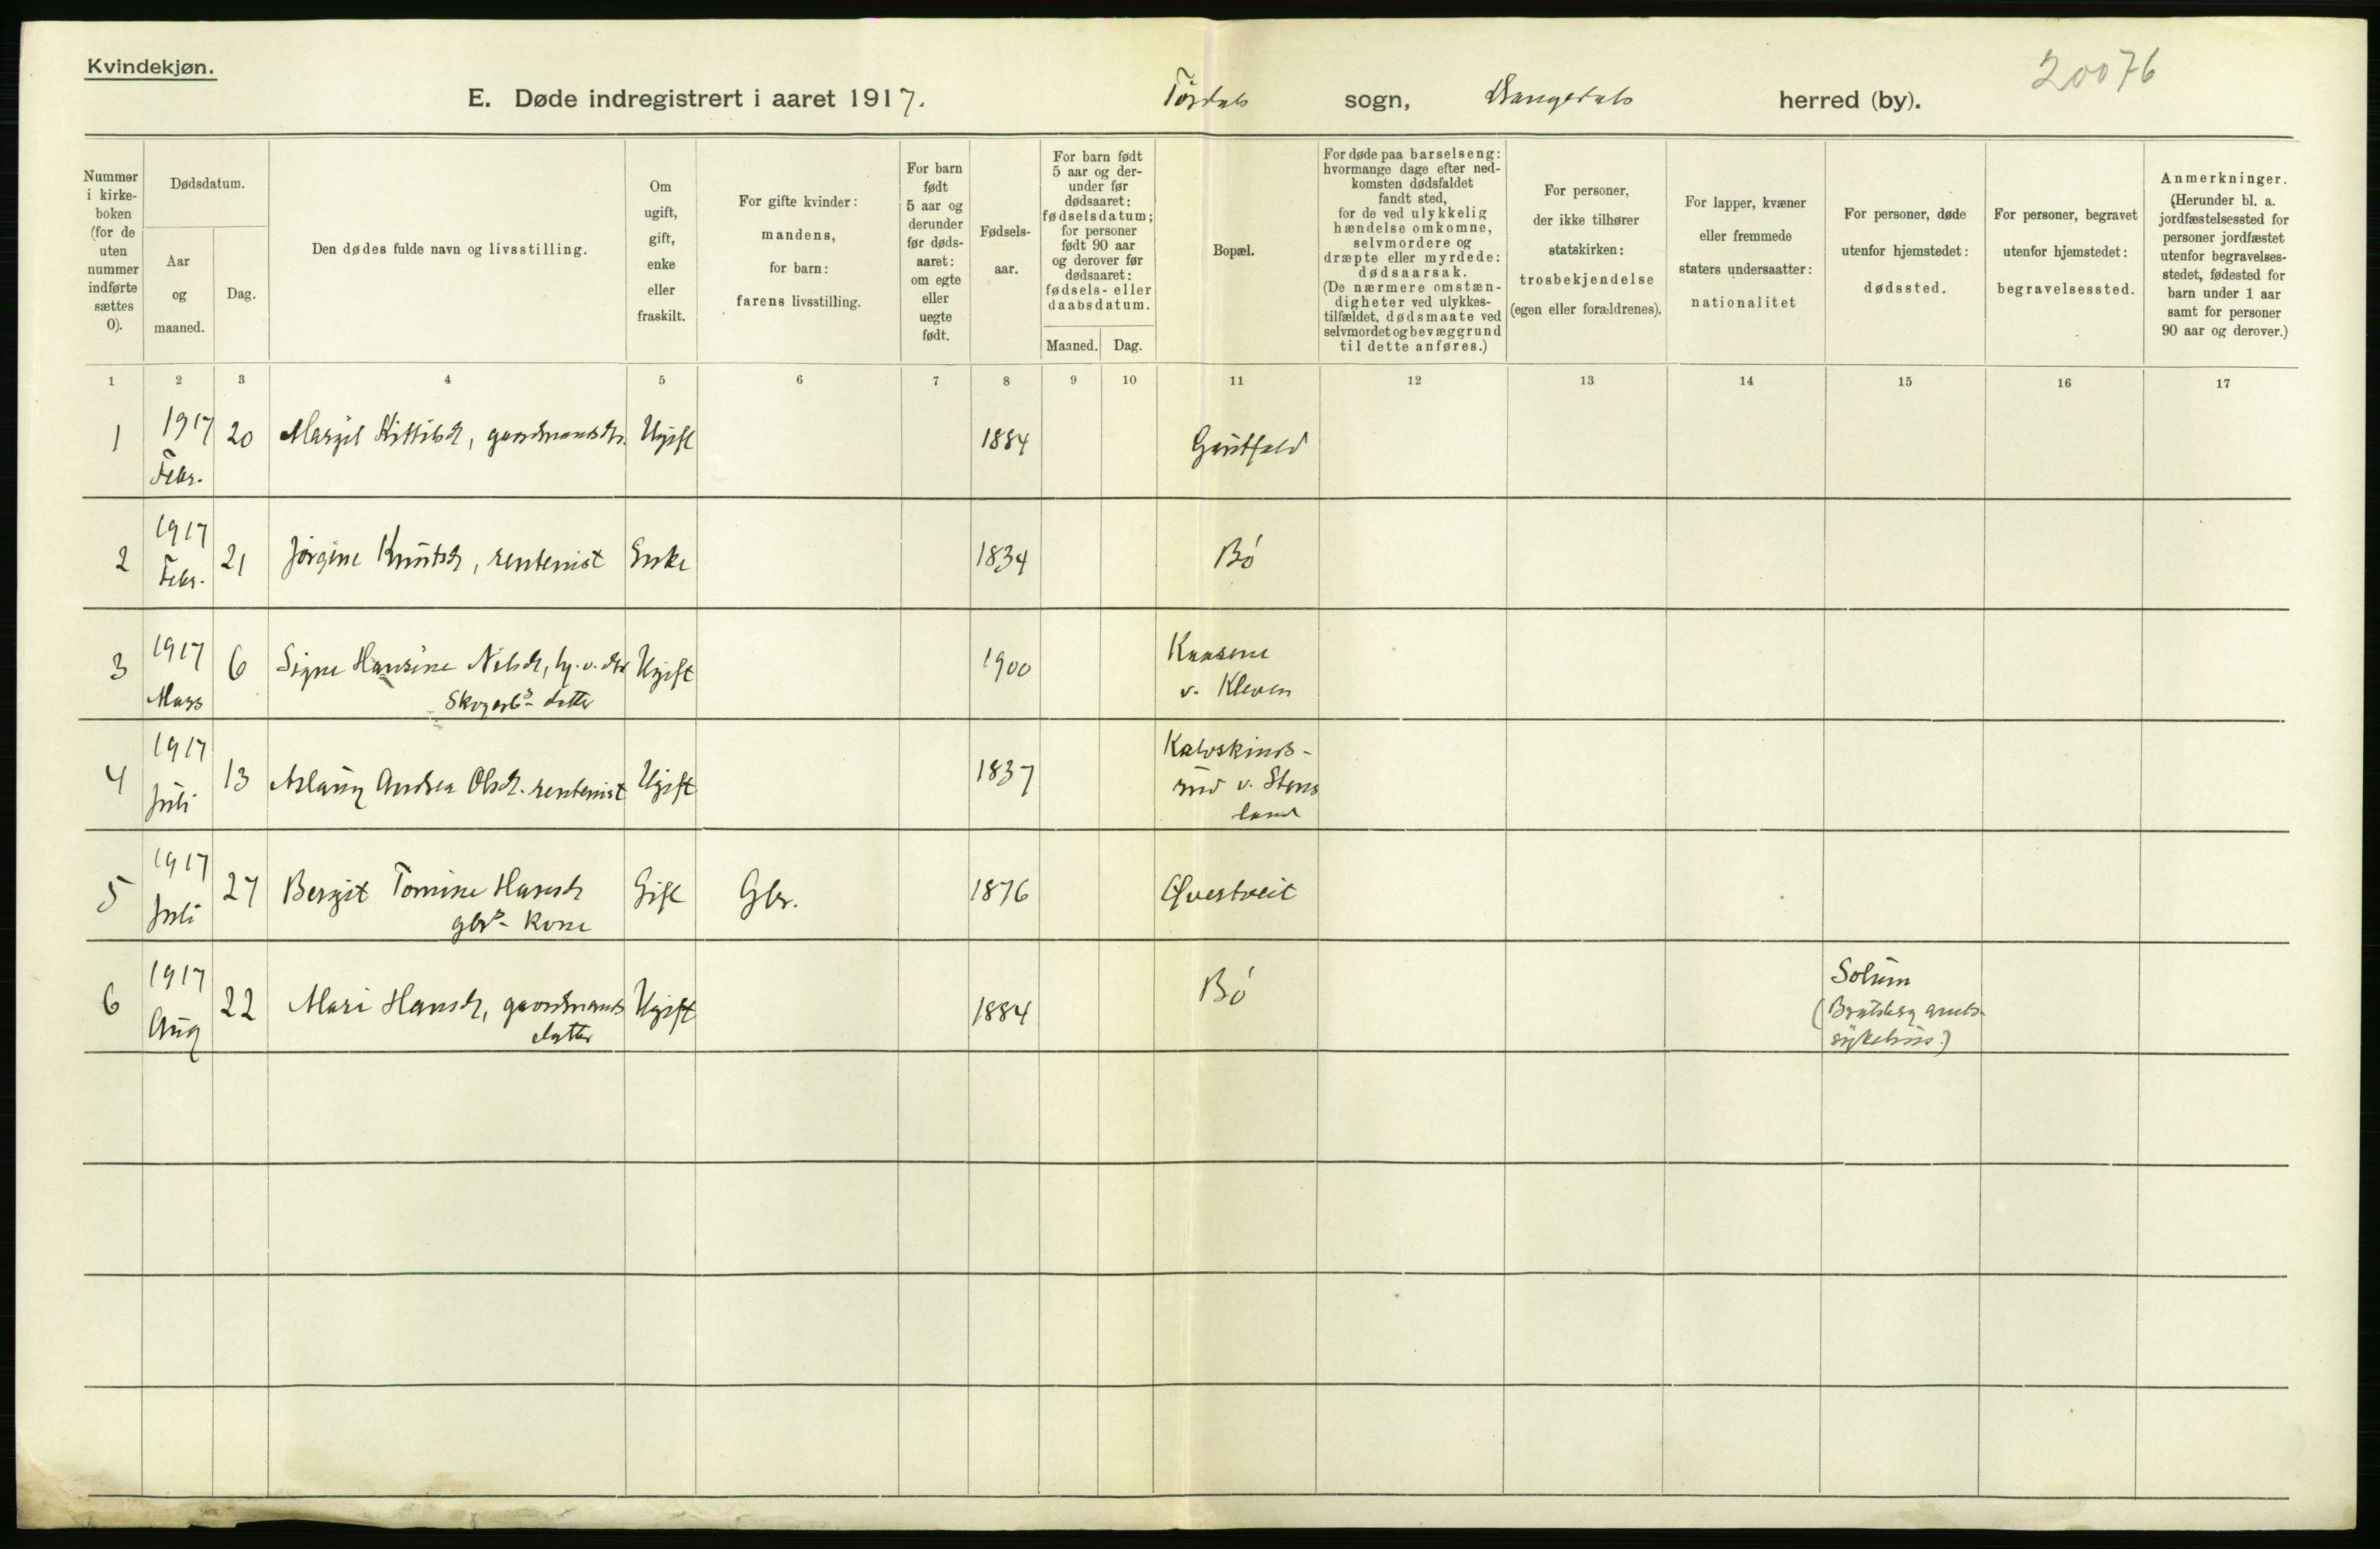 Kvindekjøn.
20076
E. Døde indregistrert i aaret 1917. Tørdals sogn, Drangedals herred (by).
Nummer i kirkeboken (for de uten nummer indførte sættes 0).
Dødsdatum.
Aar og maaned.
Dag.
Den dødes fulde navn og livsstilling.
Om ugift, gift, enke eller fraskilt.
For gifte kvinder: mandens, for barn: farens livsstilling.
For barn født 5 aar og derunder før dødsaaret: om egte eller uegte født.
Fødselsaar.
For barn født 5 aar og derunder før dødsaaret: fødselsdatum; for personer født 90 aar og derover før dødsaaret: fødsels- eller daabsdatum.
Maaned. Dag.
Bopæl.
For døde paa barselseng: hvormange dage efter nedkomsten dødsfaldet fandt sted, for de ved ulykkelig hændelse omkomne, selvmordere og dræpte eller myrdede: dødsaarsak. (De nærmere omstændigheter ved ulykkestilfældet, dødsmaate ved selvmordet og bevæggrund til dette anføres.)
For personer, der ikke tilhører statskirken: trosbekjendelse (egen eller forældrenes).
For lapper, kvæner eller fremmede staters undersaatter: nationalitet
For personer, døde utenfor hjemstedet: dødssted.
For personer, begravet utenfor hjemstedet: begravelsessted.
Anmerkninger. (Herunder bl. a. jordfæstelsessted for personer jordfæstet utenfor begravelsesstedet, fødested for barn under 1 aar samt for personer 90 aar og derover.)
1 2 3 4 5 6 7 8 9 10 11 12 13 14 15 16 17
1 1917 Febr. 20 Margit Kittilsd., gaardmandsdtr. Ugift 1884 Gautfald
2 1917 Febr. 21 Jørgine Knutsd., rentenist Enke 1834 Bø
3 1917 Mars 6 Signe Hansine Nilsd., Ugift 1900 Kaasene
Skogarbs datter v. Kleven
4 1917 Juli 13 Aslaug Andrea Olsd. rentenist Ugift 1837 Kalvskinds-
rud v. Stens
land
5 1917 Juli 27 Bergit Tomine Hansd. Gift Gbr. 1876 Øvestveit
gbrs kone
6 1917 Aug 22 Mari Hansd., gaardmands Ugift 1884 Bø Solum
datter (Bratsberg amts-
sykehus.)